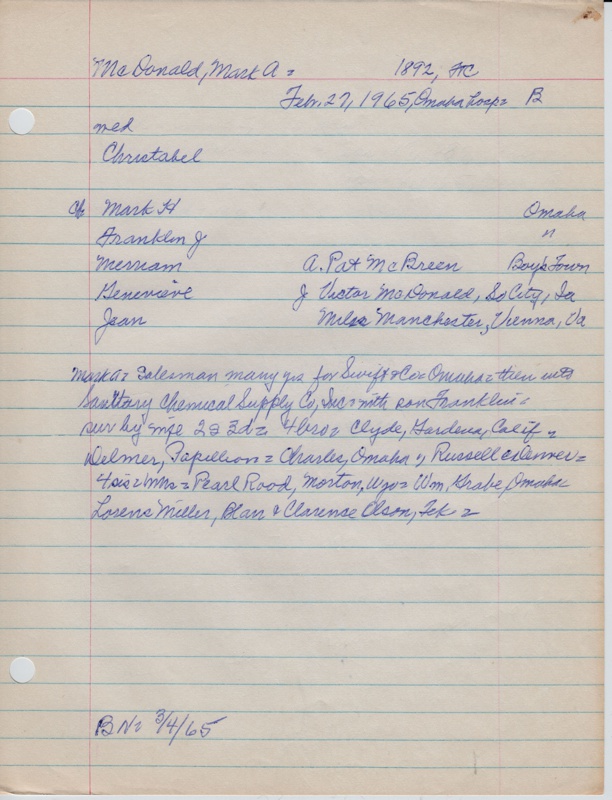 McDonald, Mark A = 1892, TC
Feb. 27, 1965, Omaha hosp = B
med
Christabel
ch Mark H Omaha
Franklin J "
Merriam A. Pat McBreen Boy's Town
Genevieve J Victor McDonald, So City, Ia
Jean Milo Manchester, Vienna, Va
Mark A = Salesman many yrs for Swift & Co = Omaha = then into
Sanitary Chemical Supply Co, Inc = with son Franklin =
sur by wife 2s 3d = 4 bro = Clyde, Gardena, Calif =
Delmer, Papillion = Charles, Omaha, Russell Denver =
4 sis = Mrs = Pearl Rood, Morton, Wyo = Wm, Grabe, Omaha =
Lorens Miller, Blair & Clarence Olson, Tek =
BN = 3/4/65